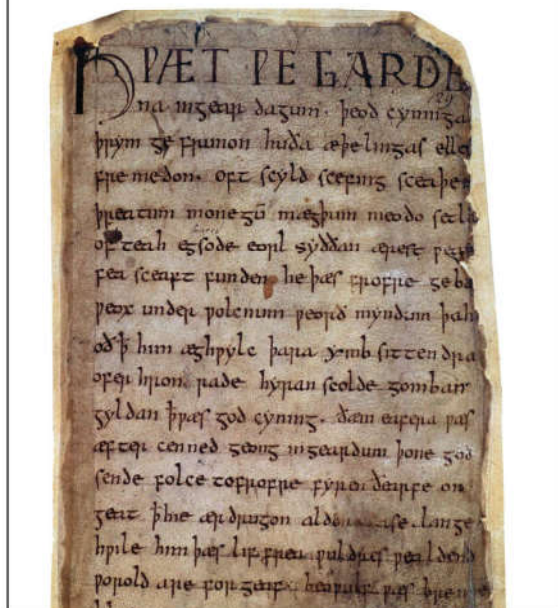 HǷÆT ǷE GARDE
na ingear dagum. þeod cyninga
þrym ge frunon huða æþelingas elle
fre medon. oft scyld scefing sceaþe
þreatum monegū mægþum meodo setla
of teah egsode eorl syððan ærest ƿe
fea sceaft funden he þæs frofre geba
ƿeox under ƿolcnum ƿeorð myndum þah
oð ꝥ him æghƿylc þara ymb sittendra
ofer hron rade hyran scolde gomban
gyldan ꝥ ƿæs god cyning. ðæm eafera ƿæs
æfter cenned geong in geardum þone god
sende folce to frofre fyren ðearfe on
geat ꝥ hie ær drugon aldor ase. lange
hƿile him þæs lif frea ƿuldres ƿealdend
ƿorold are for geaf. beoƿulf ƿæs breme